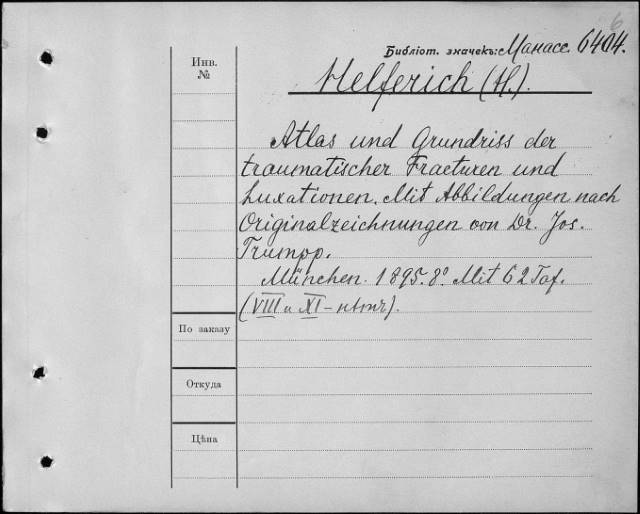 6
Библіот. значекъ: Манасе. 6404.
Инв.
№
Helferich (H.).
Atlas und Grundriss der
traumatischer Fracturen und
Luxationen. Mit Abbildungen nach
Originalzeichnungen von Dr. Jos.
Trumpp.
München. 1895. 8º. Mit 62 Taf.
(VIII и XI – нѣтъ).
По заказу
Откуда
Цѣна